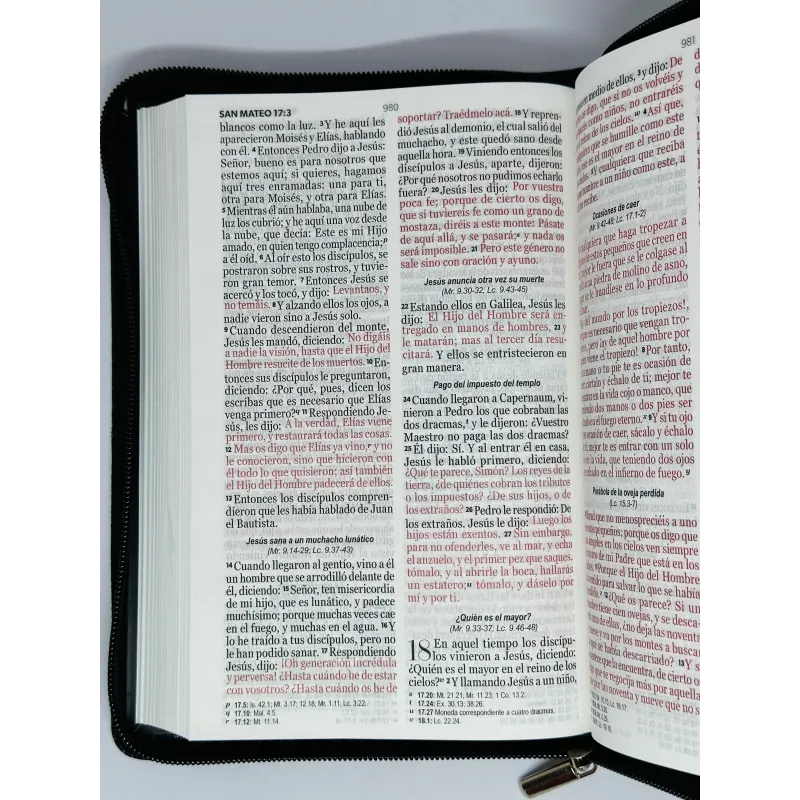 SAN MATEO 17:3
980
blancos como la luz. 3Y he aquí les
aparecieron Moisés y Elías, hablando
con él. 4Entonces Pedro dijo a Jesús:
Señor, bueno es para nosotros que
estemos aquí; si quieres, hagamos
aquí tres enramadas: una para ti,
otra para Moisés, y otra para Elías.
5Mientras él aún hablaba, una nube de
luz los cubrió; y he aquí una voz desde
la nube, que decía: Este es mi Hijo
amado, en quien tengo complacencia;p
a él oíd. 6Al oír esto los discípulos, se
postraron sobre sus rostros, y tuvie-
ron gran temor. 7Entonces Jesús se
acercó y los tocó, y dijo: Levantaos, y
no temáis. 8Y alzando ellos los ojos, a
nadie vieron sino a Jesús solo.
9Cuando descendieron del monte,
Jesús les mandó, diciendo: No digáis
a nadie la visión, hasta que el Hijo del
Hombre resucite de los muertos. 10En-
tonces sus discípulos le preguntaron,
diciendo: ¿Por qué, pues, dicen los
escribas que es necesario que Elías
venga primero?q 11Respondiendo Je-
sús, les dijo: A la verdad, Elías viene
primero, y restaurará todas las cosas.
12 Mas os digo que Elías ya vino,r y no
le conocieron, sino que hicieron con
él todo lo que quisieron; así también
el Hijo del Hombre padecerá de ellos.
13 Entonces los discípulos compren-
dieron que les había hablado de Juan
el Bautista.
Jesús sana a un muchacho lunático
(Mr. 9.14-29; Lc. 9.37-43)
14 Cuando llegaron al gentío, vino a él
un hombre que se arrodilló delante de
él, diciendo: 15Señor, ten misericordia
de mi hijo, que es lunático, y padece
muchísimo; porque muchas veces cae
en el fuego, y muchas en el agua. 16Y
lo he traído a tus discípulos, pero no
le han podido sanar. 17 Respondiendo
Jesús, dijo: ¡Oh generación incrédula
y perversa! ¿Hasta cuándo he de estar
con vosotros? ¿Hasta cuándo os he de
p 17.5: Is. 42.1; Mt. 3.17; 12.18; Mr. 1.11; Lc. 3.22.
q 17.10: Mal. 4.5.
r 17.12: Mt. 11.14.
soportar? Traédmelo acá. 18 Y repren-
dió Jesús al demonio, el cual salió del
muchacho, y este quedó sano desde
aquella hora. 19 Viniendo entonces los
discípulos a Jesús, aparte, dijeron:
¿Por qué nosotros no pudimos echarlo
fuera? 20 Jesús les dijo: Por vuestra
poca fe; porque de cierto os digo,
que si tuviereis fe como un grano de
mostaza, diréis a este monte: Pásate
de aquí allá, y se pasará;s y nada os
será imposible. 21 Pero este género no
sale sino con oración y ayuno.
Jesús anuncia otra vez su muerte
(Mr. 9.30-32; Lc. 9.43-45)
22 Estando ellos en Galilea, Jesús les
dijo: El Hijo del Hombre será en-
tregado en manos de hombres, 23 y
le matarán; mas al tercer día resu-
citará. Y ellos se entristecieron en
gran manera.
Pago del impuesto del templo
24 Cuando llegaron a Capernaum, vi-
nieron a Pedro los que cobraban las
dos dracmas,t y le dijeron: ¿Vuestro
Maestro no paga las dos dracmas?
25 Él dijo: Sí. Y al entrar él en casa,
Jesús le habló primero, diciendo:
¿Qué te parece, Simón? Los reyes de la
tierra, ¿de quiénes cobran los tributos
o los impuestos? ¿De sus hijos, o de
los extraños? 26 Pedro le respondió: De
los extraños. Jesús le dijo: Luego los
hijos están exentos. 27 Sin embargo,
para no ofenderles, ve al mar, y echa
el anzuelo, y el primer pez que saques,
tómalo, y al abrirle la boca, hallarás
un estatero;u tómalo, y dáselo por
mí y por ti.
¿Quién es el mayor?
(Mr. 9.33-37; Lc. 9.46-48)
18 En aquel tiempo los discípu-
los vinieron a Jesús, diciendo:
¿Quién es el mayor en el reino de los
cielos?v 2 Y llamando Jesús a un niño,
s 17.20: Mt. 21.21; Mr. 11.23; 1 Co. 13.2.
t 17.24: Ex. 30.13; 38.26.
u 17.27 Moneda correspondiente a cuatro dracmas.
v 18.1: Lc. 22.24.
981
en medio de ellos, 3y dijo: De
os digo, que si no os volvéis y
como niños, no entraréis
de los cielos. 4Así que,
que se humille como este
es el mayor en el reino de
Y cualquiera que reciba
nombre a un niño como este, a
recibe.
Ocasiones de caer
(Mr. 9.42-48; Lc. 17.1-2)
cualquiera que haga tropezar a
de estos pequeños que creen en
mejor le fuera que se le colgase al
una piedra de molino de asno,
que se le hundiese en lo profundo
mar.
del mundo por los tropiezos!,
que es necesario que vengan tro-
pero ¡ay de aquel hombre por
viene el tropiezo! 8Por tanto,
mano o tu pie te es ocasión de
córtalo y échalo de ti; mejor te
en la vida cojo o manco, que
teniendo dos manos o dos pies ser
en el fuego eterno. 9Y si tu ojo
ocasión de caer, sácalo y échalo
mejor te es entrar con un solo
en la vida, que teniendo dos ojos
echado en el infierno de fuego.
Parábola de la oveja perdida
(Lc. 15.3-7)
Mirad que no menospreciéis a uno
pequeños; porque os digo que
ángeles en los cielos ven siempre
de mi Padre que está en los
Porque el Hijo del Hombre
para salvar lo que se había
12¿Qué os parece? Si un
tiene cien ovejas, y se desca-
una de ellas, ¿no deja las noventa
y va por los montes a buscar
que se había descarriado? 13Y si
que la encuentra, de cierto os
que se regocija más por aquella
por las noventa y nueve que no